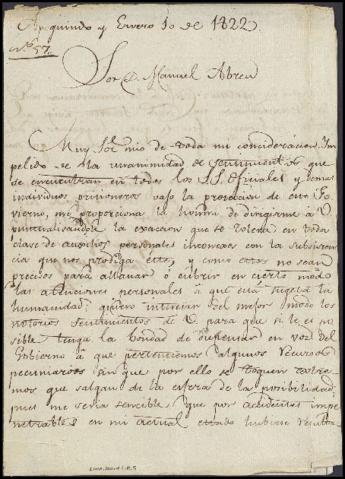 y Enero 10 de 1822
Nº 57.
Sor. D. Manuel Abreu
Muy Sor. mio de toda mi consideracion: Im
pelido de la unanimidad de sentimientos que
se encuentran en todos los S.S. Oficiales y demas
individuos prisioneros bajo la proteccion de este Go
vierno, me proporciona la honra de dirigirme á V.
puntualisandole la que se en toda
clase de auxilios personales con la subsisten
cia que nos prodiga este, y como estos no sean
precisos para allanar ó cubrir en cierto modo
las atenciones personales á que está sugeta la
humanidad; quiero del mejor modo los
notorios sentimientos de V. para que si le es po
sible tenga la bondad de en voz del
Gobierno á que pertenecemos algunos recursos
pecuniarios sin que por ello se toquen extre
mos que salgan de la esfera de la posibilidad;
pues me seria sencible que por accidentes impe
netrables en mi actual estado hubiese